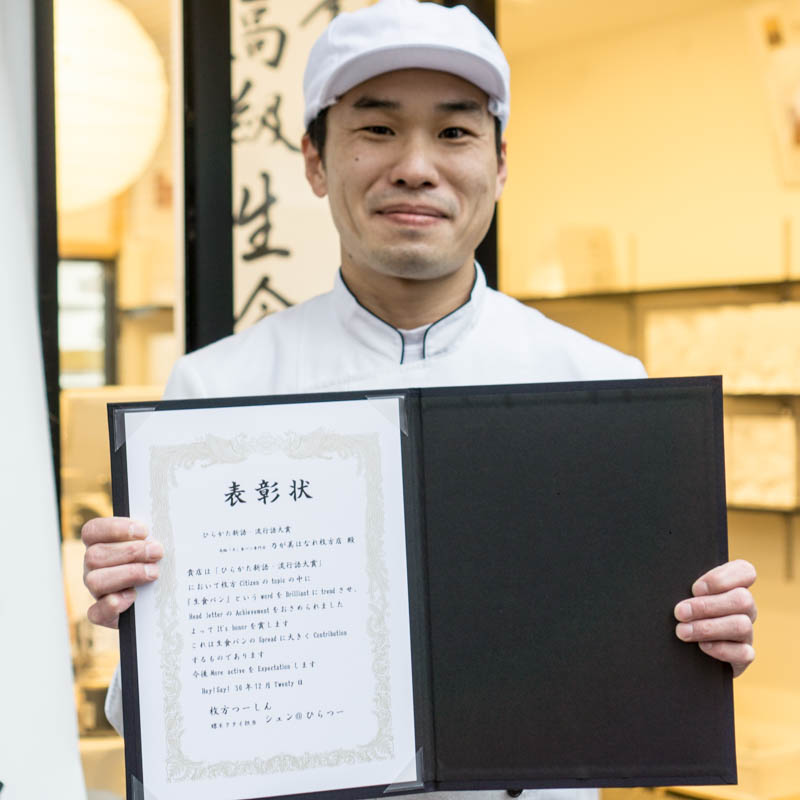 高級生食
表彰状
ひらかた新語・流行語大賞
乃が美はなれ枚方店 殿
貴店は「ひらかた新語・流行語大賞」
において枚方Citizenのtopicの中に
『生食パン』というwordをBrilliantにtrendさせ、
Head letterのAchievementをおさめられました
よってIt's honorを賞します
これは生食パンのSpreadに大きくContribution
するものであります
今後More activeをExpectationします
Hey!Say! 30年12月Twenty日
枚方つーしん
シュン@ひらつー